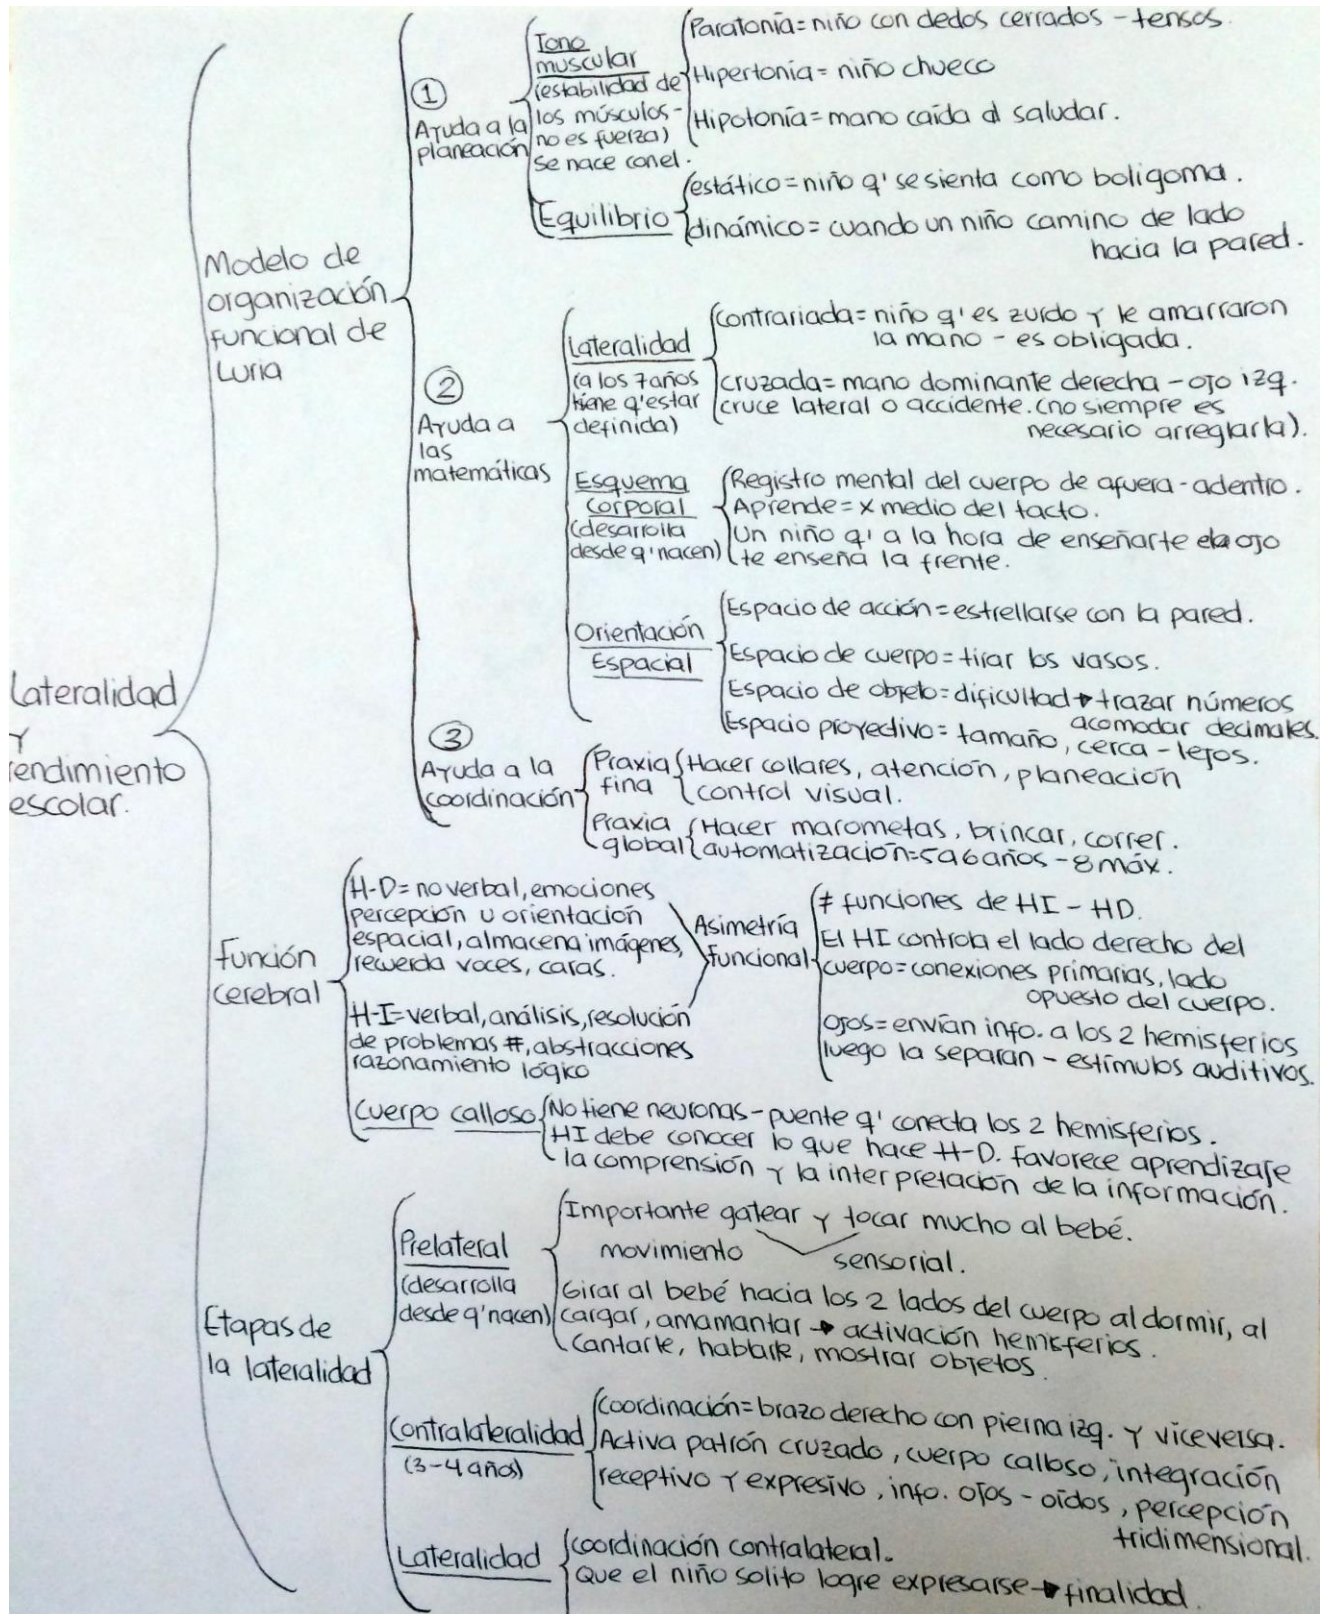 Lateralidad
Y
rendimiento
escolar.
Modelo de
organización
funcional de
Luria
①
Ayuda a la
planeación
Tono
muscular
(estabilidad de
los músculos -
no es fuerza)
se nace con el.
Paratonía = niño con dedos cerrados - tensos.
Hipertonía = niño chueco
Hipotonía = mano caída al saludar.
Equilibrio
estático = niño q' se sienta como boligoma.
dinámico = cuando un niño camino de lado
hacia la pared.
②
Ayuda a
las
matemáticas
Lateralidad
(a los 7 años
tiene q' estar
definida)
Contrariada = niño q' es zurdo y le amarraron
la mano - es obligada.
cruzada = mano dominante derecha - ojo izq.
cruce lateral o accidente. (no siempre es
necesario arreglarla).
Esquema
Corporal
(desarrolla
desde q' nacen)
Registro mental del cuerpo de afuera - adentro.
Aprende = x medio del tacto.
Un niño q' a la hora de enseñarte el ojo
te enseña la frente.
Orientación
Espacial
Espacio de acción = estrellarse con la pared.
Espacio de cuerpo = tirar los vasos.
Espacio de objeto = dificultad → trazar números
acomodar decimales.
Espacio proyectivo = tamaño, cerca - lejos.
③
Ayuda a la
coordinación
Praxia
fina
Hacer collares, atención, planeación
control visual.
Praxia
global
Hacer marometas, brincar, correr.
automatización = 5 a 6 años - 8 máx.
Función
cerebral
H-D = no verbal, emociones
percepción u orientación
espacial, almacena imágenes,
recuerda voces, caras.
H-I = verbal, análisis, resolución
de problemas #, abstracciones
razonamiento lógico
Asimetría
funcional
≠ funciones de HI - HD.
El HI controla el lado derecho del
cuerpo = conexiones primarias, lado
opuesto del cuerpo.
Ojos = envían info. a los 2 hemisferios
luego la separan - estímulos auditivos.
Cuerpo calloso
No tiene neuronas - puente q' conecta los 2 hemisferios.
HI debe conocer lo que hace H-D. Favorece aprendizaje
la comprensión y la interpretación de la información.
Etapas de
la lateralidad
Prelateral
(desarrolla
desde q' nacen)
Importante gatear y tocar mucho al bebé.
movimiento sensorial.
Girar al bebé hacia los 2 lados del cuerpo al dormir, al
cargar, amamantar → activación hemisferios.
Cantarle, hablarle, mostrar objetos.
Contralateralidad
(3-4 años)
Coordinación = brazo derecho con pierna izq. y viceversa.
Activa patrón cruzado, cuerpo calloso, integración
receptivo y expresivo, info. ojos - oídos, percepción
tridimensional.
Lateralidad
Coordinación contralateral.
Que el niño solito logre expresarse → finalidad.